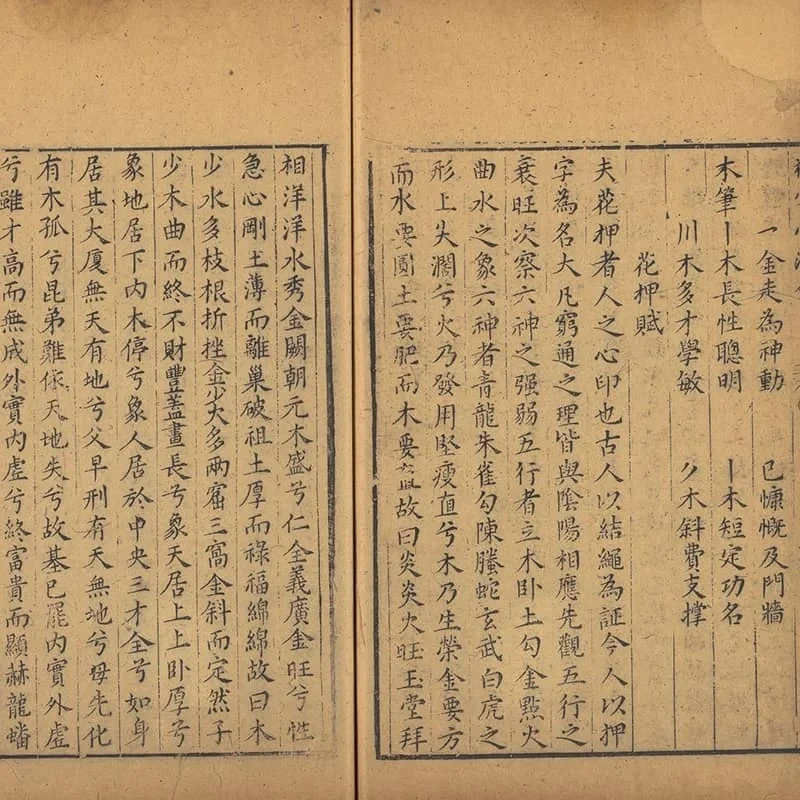 一金走為神動　己慷慨及門牆
木筆丨木長性聰明　丨木短定功名
川木多才學敏　𠂊木斜費支撐
花押賦
夫花押者人之心印也古人以結繩為証今人以押
字為名大凡窮通之理皆與陰陽相應先觀五行之
衰旺次察六神之强弱五行者立木卧土勾金㸃火
曲水之象六神者青龍朱雀勾陳螣蛇玄武白虎之
形上尖濶兮火乃發用堅瘦直兮木乃生榮金要方
而水要圓土要肥而木要故曰炎炎火旺玉堂拜
相洋洋水秀金闕朝元木盛兮仁全義廣金旺兮性
急心剛土薄而離巢破祖土厚而祿福綿綿故曰木
少水多枝根折挫金少火多兩窰三窩金斜而定然子
少木曲而終不財豐蓋畫長兮象天居上上卧厚兮
象地居下内木停兮象人居於中央三才全兮如身
居其大厦無天有地兮父早刑有天無地兮母先化
有木孤兮昆弟難倚天地失兮故基已罷内實外虛
兮雖才高而無成外實内虛兮終富貴而顯赫龍蟠